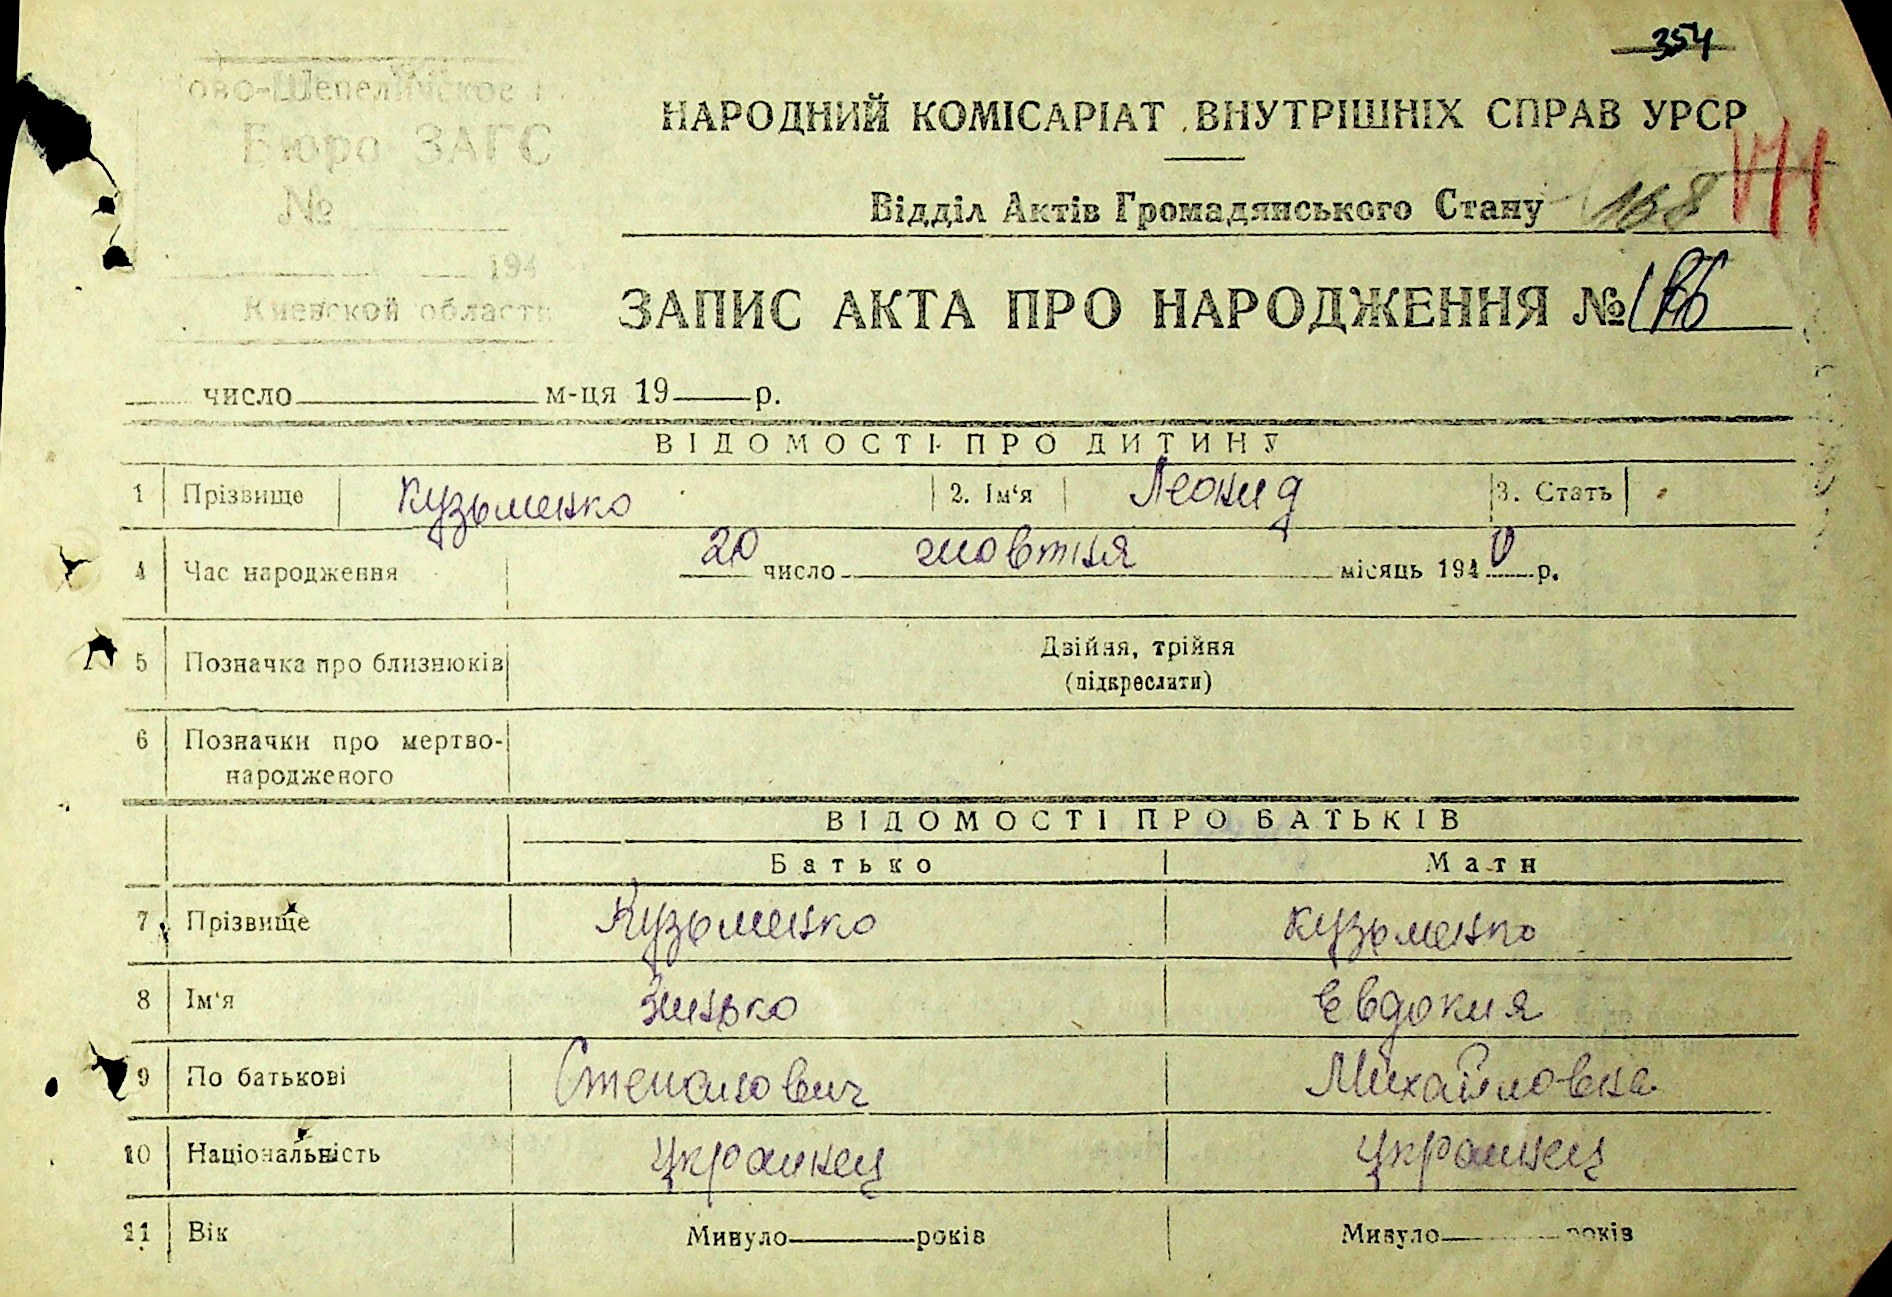 354
ово-Шепеличское
Бюро ЗАГС
№
194
Киевской области
НАРОДНИЙ КОМІСАРІАТ ВНУТРІШНІХ СПРАВ УРСР
171
Відділ Актів Громадянського Стану 168
ЗАПИС АКТА ПРО НАРОДЖЕННЯ №
число м-ця 19 р.
ВІДОМОСТІ ПРО ДИТИНУ
1 Прізвище Кузьменко 2. Ім‘я Леонид 3. Стать
4 Час народження 20 число жовтня місяць 1940 р.
5 Позначка про близнюків Двійня, трійня
(підкреслити)
6 Позначки про мертво-
народженого
ВІДОМОСТІ ПРО БАТЬКІВ
Батько Мати
7 Прізвище Кузьменко Кузьменко
8 Ім‘я Зинько Евдокия
9 По батькові Степанович Михайловна
10 Національність украинец украинец
11 Вік Минуло років Минуло років